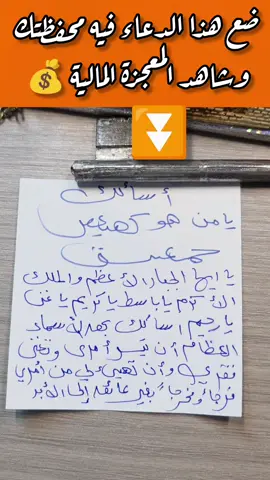 ضع هذا الدعاء فيه محفظتك
وشاهد المعجزة المالية
أسالك
يا من هو كهيعص
حمعسق
يا ايها الجبار الأعظم والملك
الأكرم يا باسط يا كريم يا غني
يا رحيم اسالك بهذه الأسماء
العظام أن تيسر أمري وتغني
فقري وأن تهيئ لي من أمري
فرجاً ومخرجاً بغير عائقه إلى الأبد